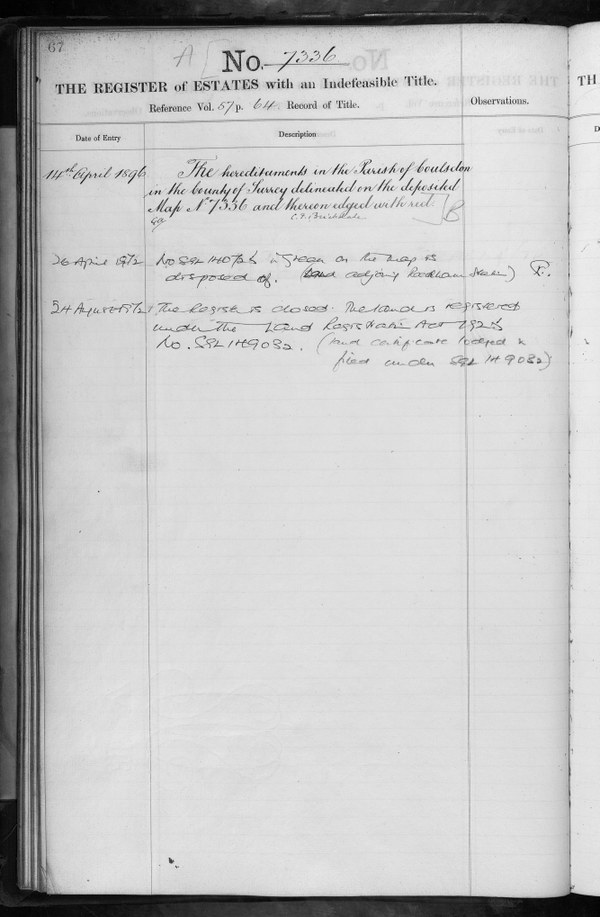 67
No. 7336
THE REGISTER of ESTATES with an Indefeasible Title.
Reference Vol. 57 p. 64. Record of Title.
Observations.
Date of Entry
Description
14th April 1896
The hereditaments in the Parish of Coulsdon
in the County of Surrey delineated on the deposited
Map No 7336 and thereon edged with red
26 April 1972
No SGL 140725 in green on the map is
disposed of. (Land adjoining
24 August 1972
The Register is closed. The land is registered
under the Land Registration Act 1925
No. SGL 149032. (Land certificate lodged &
filed under SGL 149032)
TH
D